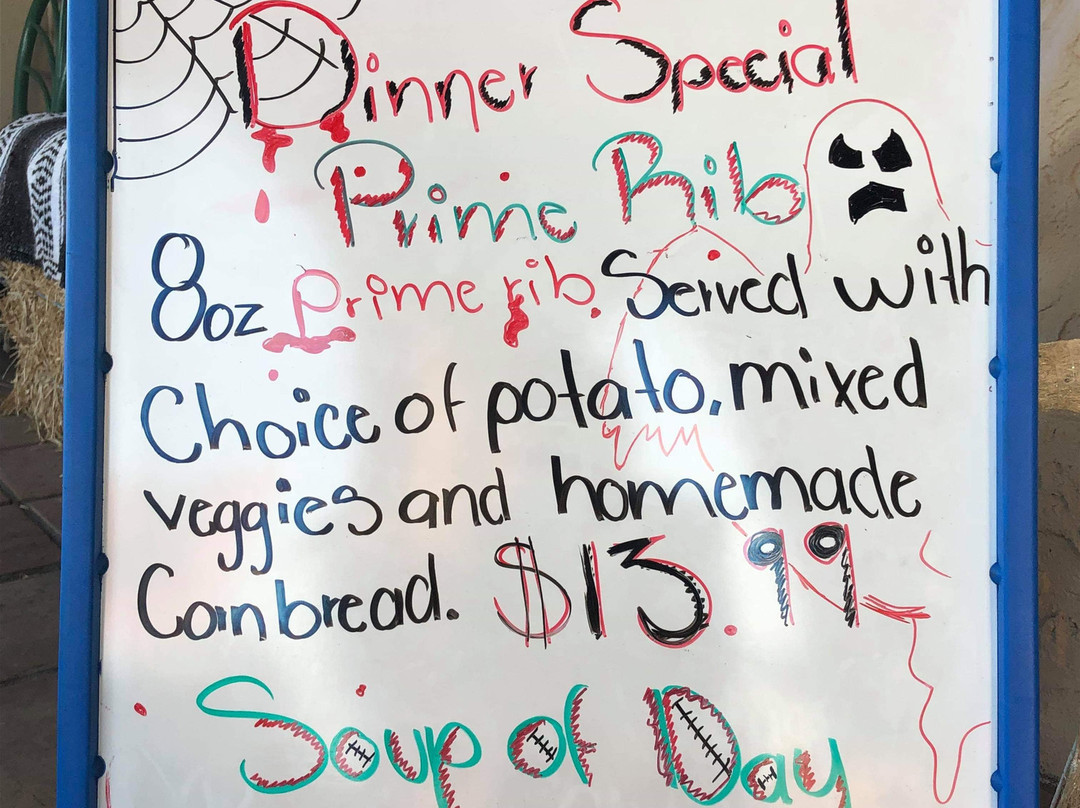 Dinner Special
Prime Rib
8oz prime rib. Served with
Choice of potato, mixed
veggies and homemade
Cornbread. $13.99
Soup of Day